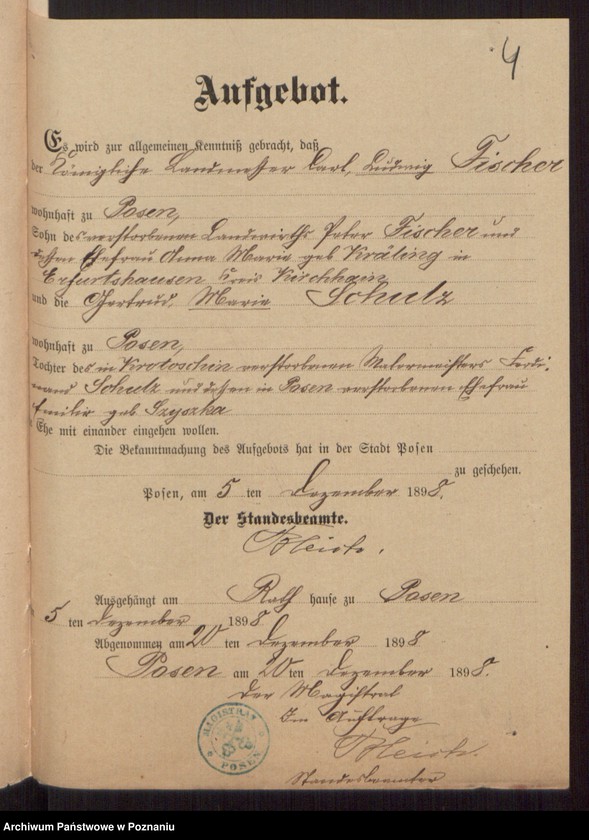 4
Aufgebot.
Es wird zur allgemeinen Kenntniß gebracht, daß
der Königliche Landmesser Carl, Ludwig Fischer
wohnhaft zu Posen,
Sohn des verstorbenen Landwirths Peter Fischer und
dessen Ehefrau Anna Marie geb Kräling in
Erfurtshausen Kreis Kirchhain
und die Gertrud, Marie Schulz
wohnhaft zu Posen,
Tochter des in Krotoschin verstorbenen Malermeisters Ferdi-
nand Schulz und dessen in Posen verstorbenen Ehefrau
Emilie geb Szyszka
Ehe mit einander eingehen wollen.
Die Bekanntmachung des Aufgebots hat in der Stadt Posen
zu geschehen.
Posen, am 5 ten Dezember 1898.
Der Standesbeamte.
Ausgehängt am Rath hause zu Posen
5 ten Dezember 1898
Abgenommen am 20 ten Dezember 1898
Posen am 20 ten Dezember 1898.
Der Magistrat
Im Auftrage
Standesbeamter
MAGISTRAT
POSEN
Archiwum Państwowe w Poznaniu